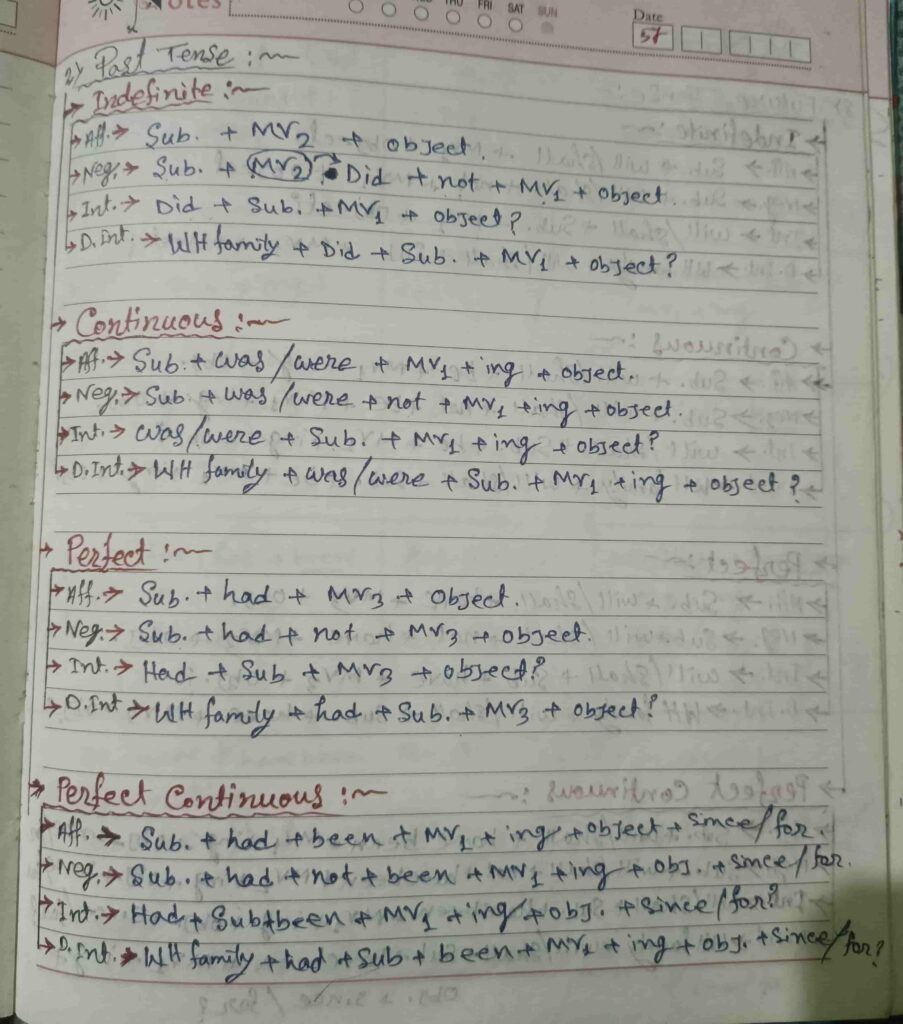 Notes
THU FRI SAT SUN
Date
51
2) Past Tense :~
→ Indefinite :~
→ Aff. → Sub. + MV2 + object.
→ Neg. → Sub. + MV2 Did + not + MV1 + object.
→ Int. → Did + Sub. + MV1 + object?
→ D. Int. → WH family + Did + Sub. + MV1 + object?
→ Continuous :~
→ Aff. → Sub. + was/were + MV1 + ing + object.
→ Neg. → Sub + was/were + not + MV1 + ing + object.
→ Int. → was/were + Sub. + MV1 + ing + object?
→ D. Int. → WH family + was/were + Sub. + MV1 + ing + object?
→ Perfect :~
→ Aff. → Sub. + had + MV3 + object.
→ Neg. → Sub. + had + not + MV3 + object.
→ Int. → Had + Sub + MV3 + object?
→ D. Int → WH family + had + Sub. + MV3 + object?
→ Perfect Continuous :~
→ Aff. → Sub. + had + been + MV1 + ing + object + since/for.
→ Neg. → Sub. + had + not + been + MV1 + ing + obj. + since/for.
→ Int. → Had + Sub + been + MV1 + ing + obj. + since/for?
→ D. Int. → WH family + had + Sub + been + MV1 + ing + obj. + since/for?